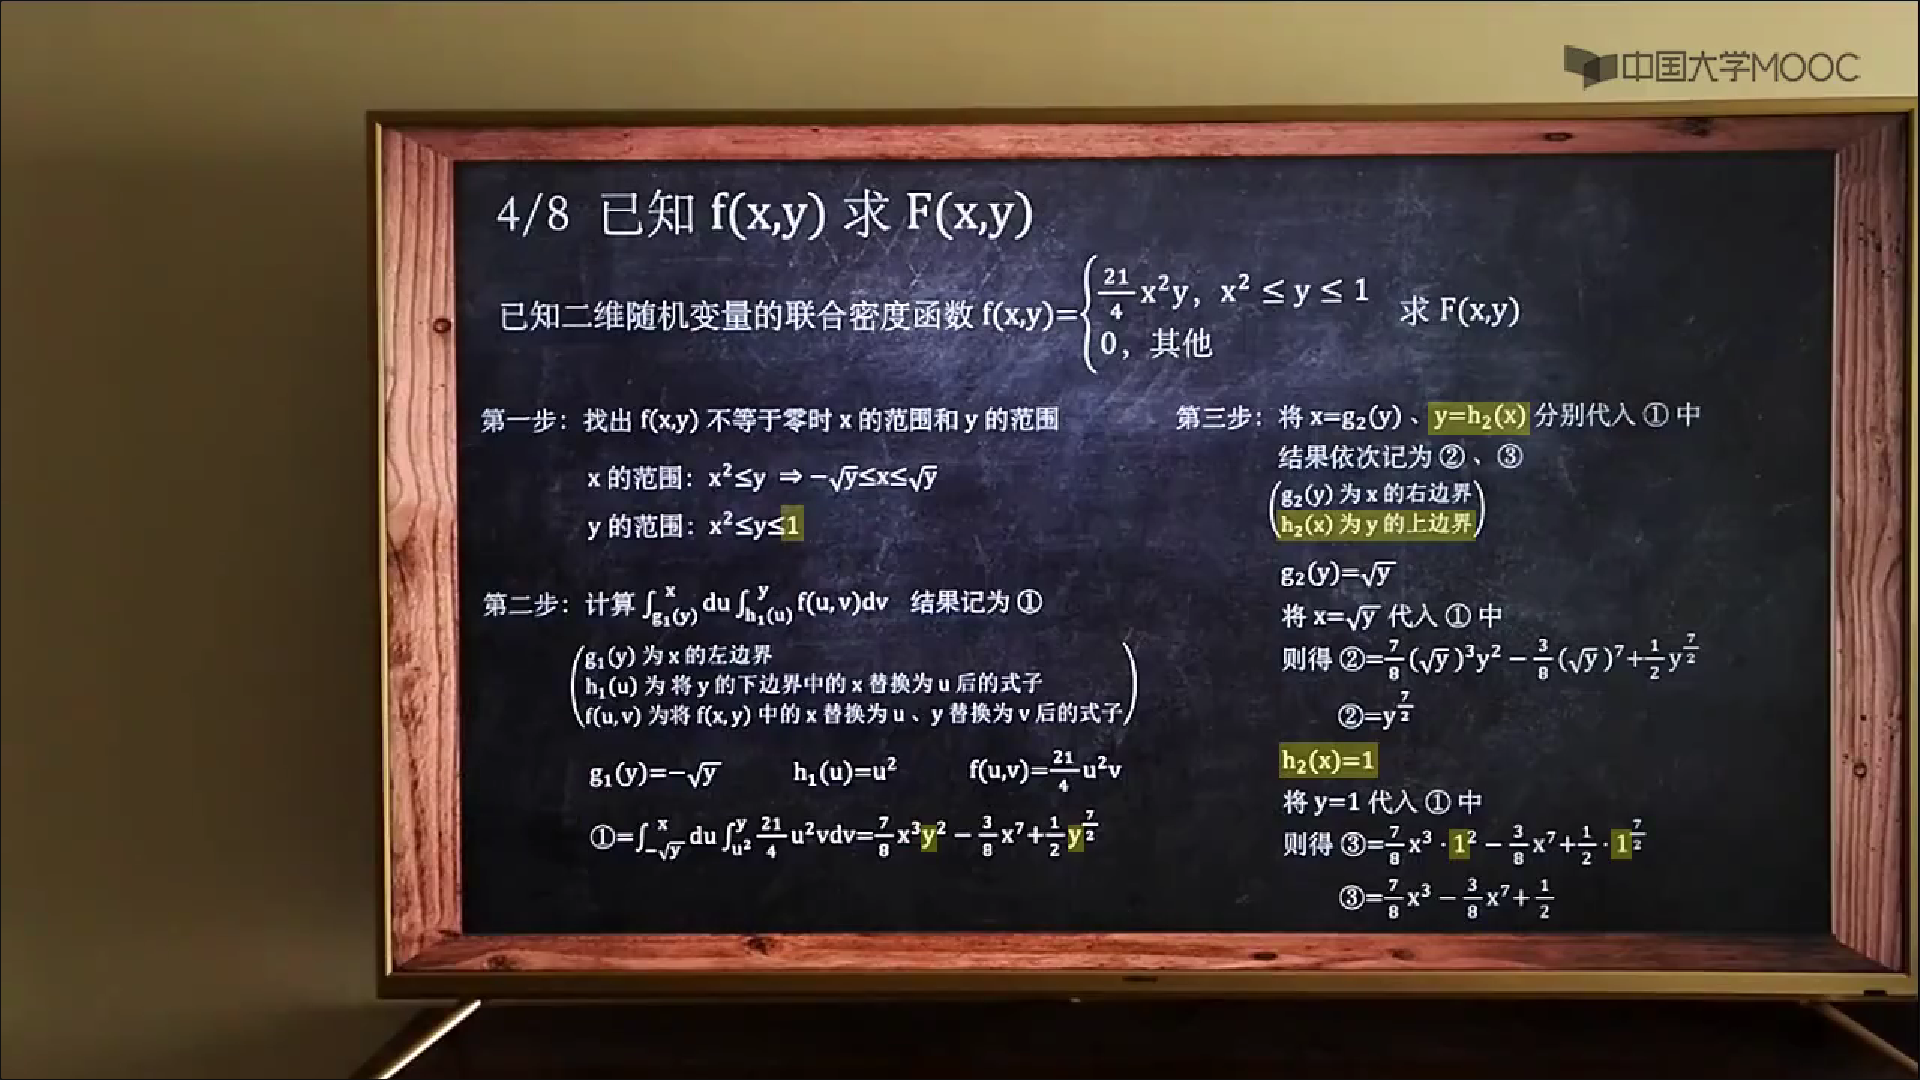 中国大学MOOC
4/8 已知 f(x,y) 求 F(x,y)
已知二维随机变量的联合密度函数 f(x,y)={21/4 x²y, x² ≤ y ≤ 1 求 F(x,y)
0, 其他
第一步：找出 f(x,y) 不等于零时 x 的范围和 y 的范围
x 的范围：x²≤y ⇒ −√y≤x≤√y
y 的范围：x²≤y≤1
第二步：计算 ∫_{g₁(y)}^{x} du ∫_{h₁(u)}^{y} f(u,v)dv 结果记为 ①
(g₁(y) 为 x 的左边界
h₁(u) 为 将 y 的下边界中的 x 替换为 u 后的式子
f(u,v) 为将 f(x,y) 中的 x 替换为 u 、y 替换为 v 后的式子)
g₁(y)=−√y h₁(u)=u² f(u,v)=21/4 u²v
①=∫_{−√y}^{x} du ∫_{u²}^{y} 21/4 u²vdv=7/8 x³y² − 3/8 x⁷+1/2 y^{7/2}
第三步：将 x=g₂(y) 、y=h₂(x) 分别代入 ① 中
结果依次记为 ② 、③
(g₂(y) 为 x 的右边界
h₂(x) 为 y 的上边界)
g₂(y)=√y
将 x=√y 代入 ① 中
则得 ②=7/8 (√y)³y² − 3/8 (√y)⁷+1/2 y^{7/2}
②=y^{7/2}
h₂(x)=1
将 y=1 代入 ① 中
则得 ③=7/8 x³ · 1² − 3/8 x⁷+1/2 · 1^{7/2}
③=7/8 x³ − 3/8 x⁷+1/2